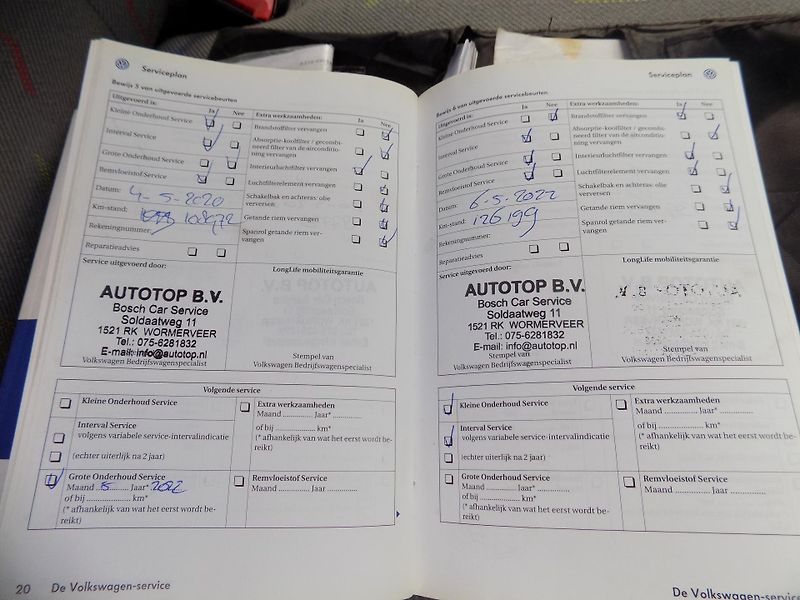 Serviceplan
Bewijs 5 van uitgevoerde servicebeurten
Uitgevoerd is: Ja Nee
Kleine Onderhoud Service
Interval Service
Grote Onderhoud Service
Remvloeistof Service
Datum: 4-5-2020
Km-stand: 108972
Rekeningnummer:
Reparatieadvies
Extra werkzaamheden: Ja Nee
Brandstoffilter vervangen
Absorptie-koolfilter / gecombi-
neerd filter van de aircondition-
ning vervangen
Interieurluchtfilter vervangen
Luchtfilterelement vervangen
Schakelbak en achteras: olie
verversen
Getande riem vervangen
Spanrol getande riem ver-
vangen
Service uitgevoerd door:
AUTOTOP B.V.
Bosch Car Service
Soldaatweg 11
1521 RK WORMERVEER
Tel.: 075-6281832
E-mail: info@autotop.nl
Volkswagen Bedrijfswagenspecialist
LongLife mobiliteitsgarantie
Stempel van
Volkswagen Bedrijfswagenspecialist
Volgende service
Kleine Onderhoud Service
Interval Service
volgens variabele service-intervalindicatie
(echter uiterlijk na 2 jaar)
Grote Onderhoud Service
Maand 5 Jaar* 2022
of bij .............. km*
(* afhankelijk van wat het eerst wordt be-
reikt)
Extra werkzaamheden
Maand ......... Jaar* .............
of bij .............. km*
(* afhankelijk van wat het eerst wordt be-
reikt)
Remvloeistof Service
Maand ......... Jaar .............
20 De Volkswagen-service
Serviceplan
Bewijs 6 van uitgevoerde servicebeurten
Uitgevoerd is: Ja Nee
Kleine Onderhoud Service
Interval Service
Grote Onderhoud Service
Remvloeistof Service
Datum: 6-5-2022
Km-stand: 126199
Rekeningnummer:
Reparatieadvies
Extra werkzaamheden: Ja Nee
Brandstoffilter vervangen
Absorptie-koolfilter / gecombi-
neerd filter van de aircondition-
ning vervangen
Interieurluchtfilter vervangen
Luchtfilterelement vervangen
Schakelbak en achteras: olie
verversen
Getande riem vervangen
Spanrol getande riem ver-
vangen
Service uitgevoerd door:
AUTOTOP B.V.
Bosch Car Service
Soldaatweg 11
1521 RK WORMERVEER
Tel.: 075-6281832
E-mail: info@autotop.nl
Stempel van
Volkswagen Bedrijfswagenspecialist
LongLife mobiliteitsgarantie
Stempel van
Volkswagen Bedrijfswagenspecialist
Volgende service
Kleine Onderhoud Service
Interval Service
volgens variabele service-intervalindicatie
(echter uiterlijk na 2 jaar)
Grote Onderhoud Service
Maand ......... Jaar* .............
of bij .............. km*
(* afhankelijk van wat het eerst wordt be-
reikt)
Extra werkzaamheden
Maand ......... Jaar* .............
of bij .............. km*
(* afhankelijk van wat het eerst wordt be-
reikt)
Remvloeistof Service
Maand ......... Jaar .............
De Volkswagen-service